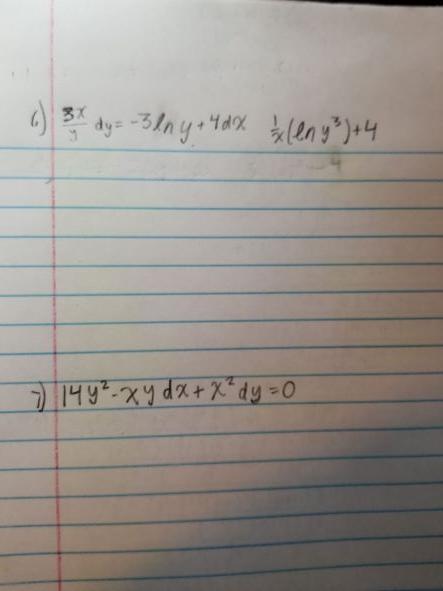 6) 3x/y dy = -3 ln y + 4dx 1/x (ln y³) + 4
7) 14y² - xy dx + x² dy = 0